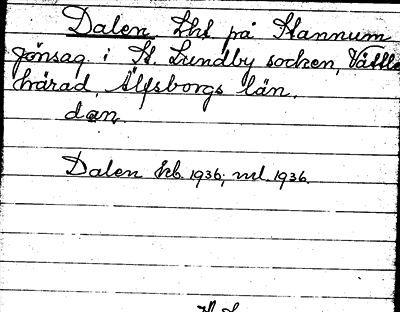 Dalen Lht på Stannum
Jönsag. i St. Lundby socken, Vättle
härad, Älfsborgs län.
dan.
Dalen kb. 1936; ml. 1936.